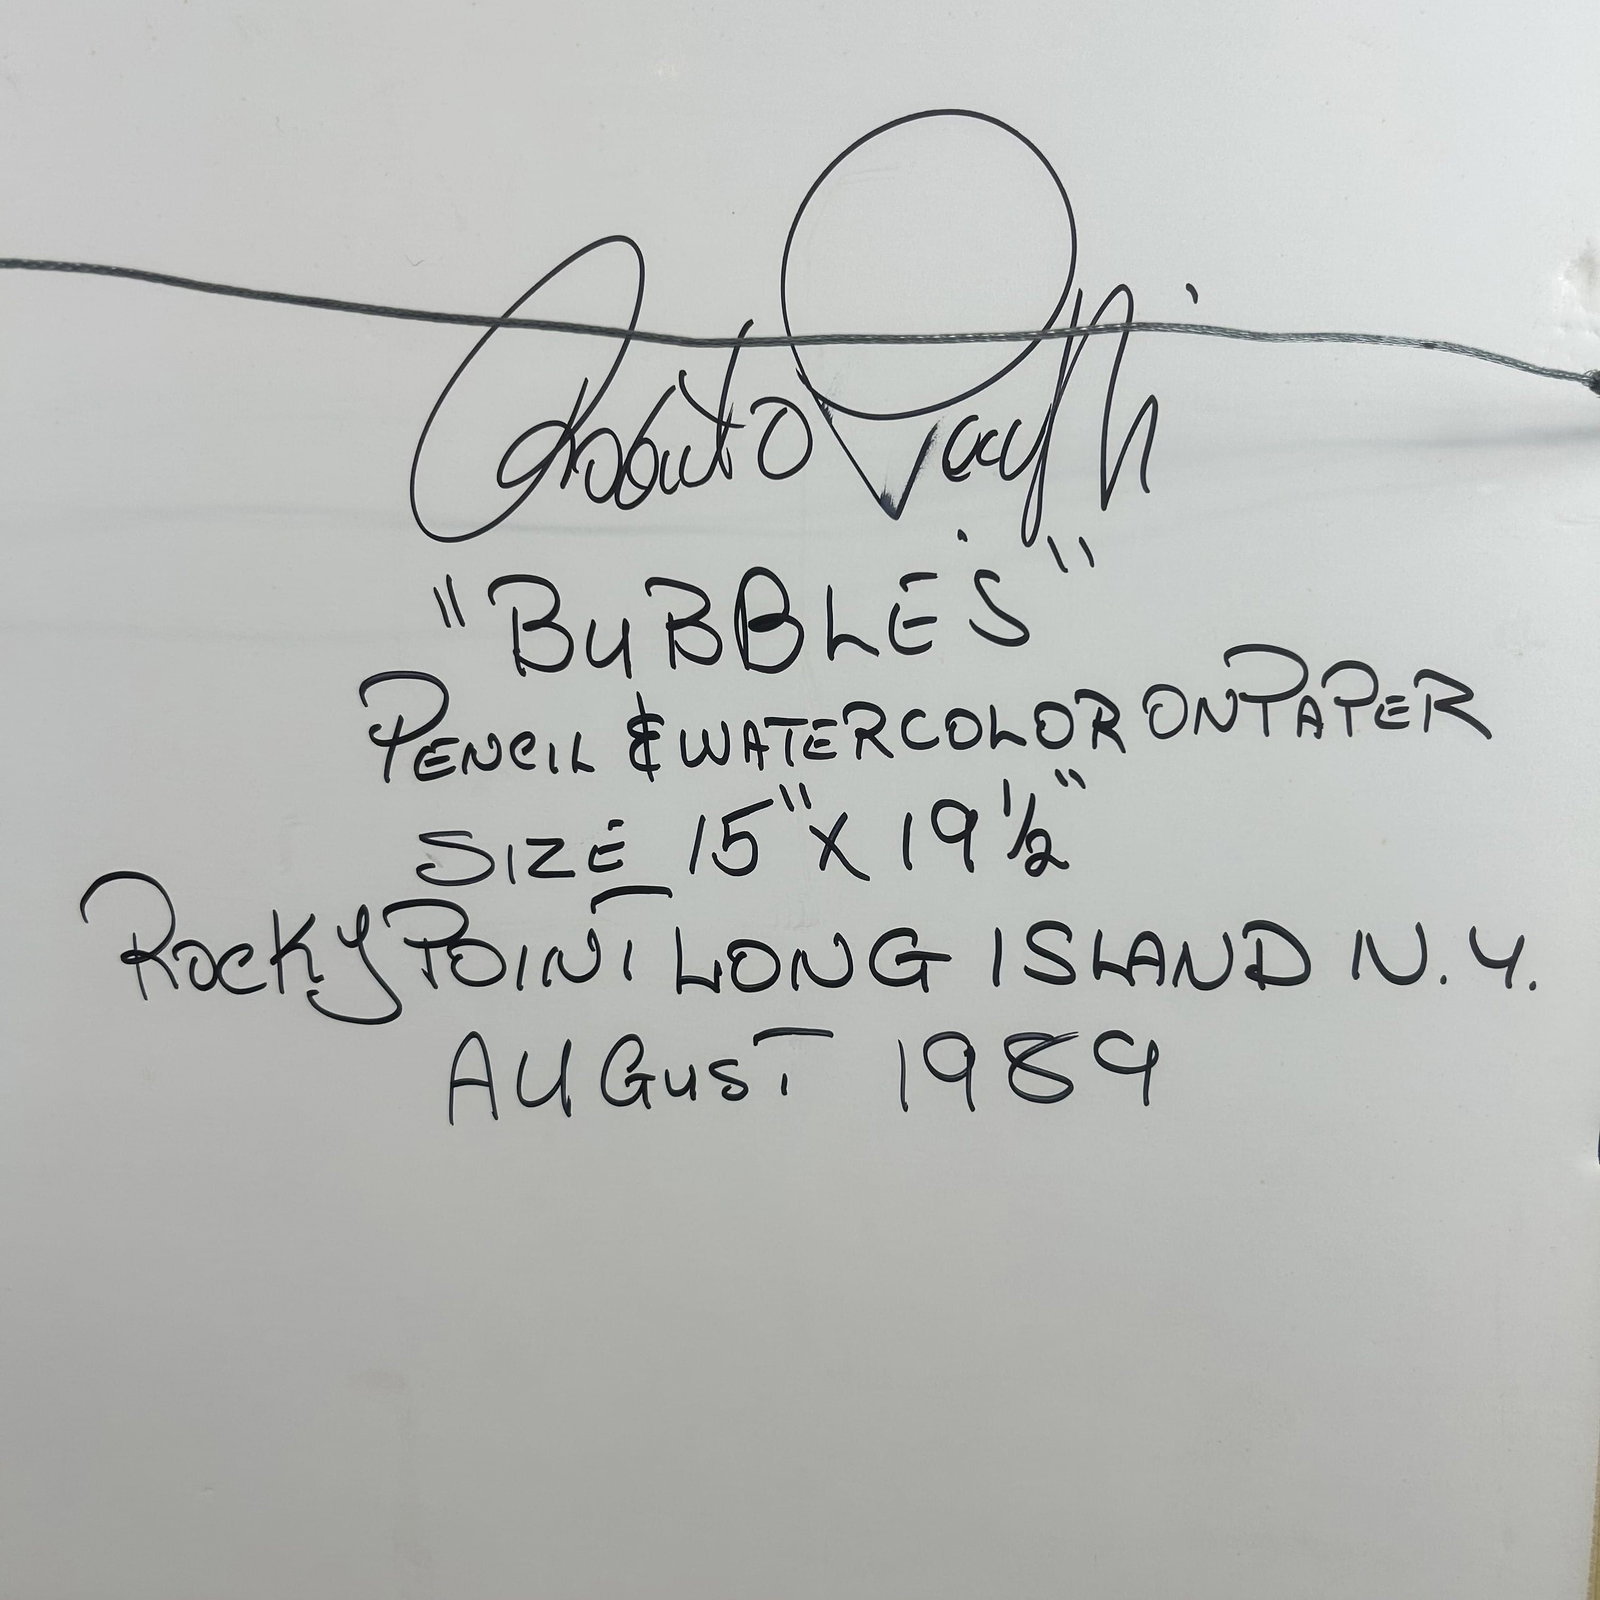 Roberto
"BUBBLES"
PENCIL & WATERCOLOR ON PAPER
SIZE 15" X 19 1/2"
ROCKY POINT LONG ISLAND N.Y.
AUGUST 1989